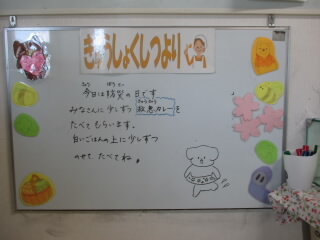 きゅうしょくしつより
きょう ぼうさい
今日は防災の日です
きゅうきゅう
みなさんに少しずつ救急カレーを
たべてもらいます。
白いごはんの上に少しずつ
のせて、たべてね。